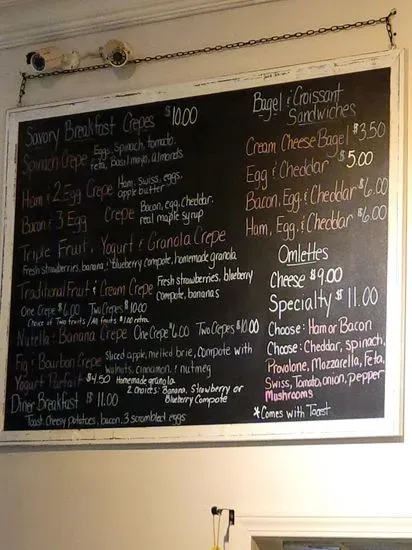 Savory Breakfast Crepes $10.00
Spinach Crepe Eggs, spinach, tomato,
feta, Basil mayo, almonds
Ham & 2 Egg Crepe Ham, swiss, eggs,
apple butter
Bacon & 3 Egg Crepe Bacon, egg, cheddar,
real maple syrup
Triple Fruit, Yogurt & Granola Crepe
Fresh strawberries, banana & blueberry compote, homemade granola
Traditional Fruit & Cream Crepe Fresh strawberries, blueberry
compote, bananas
One Crepe $6.00 Two Crepes $10.00
Choice of Two fruits / All fruits $1.00 extra
Nutella & Banana Crepe One Crepe $6.00 Two Crepes $10.00
Fig & Bourbon Crepe Sliced apple, melted brie, compote with
walnuts, cinnamon, & nutmeg
Yogurt Parfait $4.50 Homemade granola
2 Choices: Banana, Strawberry or
Blueberry Compote
Diner Breakfast $11.00
Toast, cheesy potatoes, bacon, 3 scrambled eggs
Bagel & Croissant
Sandwiches
Cream Cheese Bagel $3.50
Egg & Cheddar $5.00
Bacon, Egg, & Cheddar $6.00
Ham, Egg, & Cheddar $6.00
Omlettes
Cheese $9.00
Specialty $11.00
Choose: Ham or Bacon
Choose: Cheddar, spinach,
Provolone, Mozzarella, feta,
Swiss, Tomato, onion, pepper
Mushrooms
*Comes with Toast